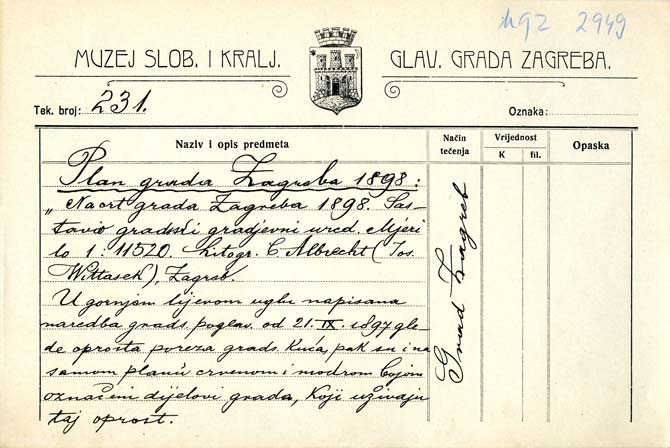 mgz 2949
MUZEJ SLOB. I KRALJ. GLAV. GRADA ZAGREBA.
Tek. broj: 231. Oznaka:
Naziv i opis predmeta
Način tečenja
Vrijednost
K fil.
Opaska
Plan grada Zagreba 1898:
"Nacrt grada Zagreba 1898. Sas-
tavio gradski gradjevni ured. Mjeri
lo 1:11520. Litogr. C. Albrecht (Jos.
Wittasek), Zagreb.
U gornjem lijevom uglu napisana
naredba grads. poglav. od 21. IX. 1897 gle-
de oprosta poreza grads. kuća, pak su i na
samom planu crvenom i modrom bojom
označeni dijelovi grada, koji uživaju
taj oprost.
Grad Zagreb